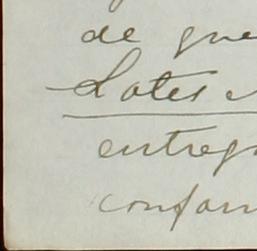 de gue
Lotes
entreg
conform